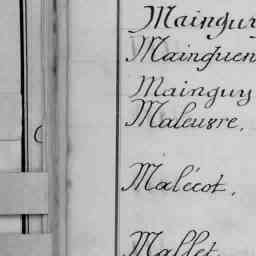 Maingur
Mainguen
Mainguy
Maleuvre.
Malécot.
Mallet